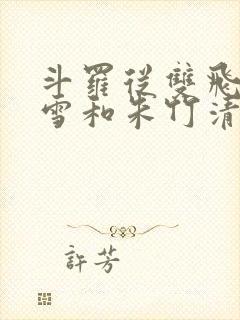 斗羅從雙飛
雪和朱竹清
許芳